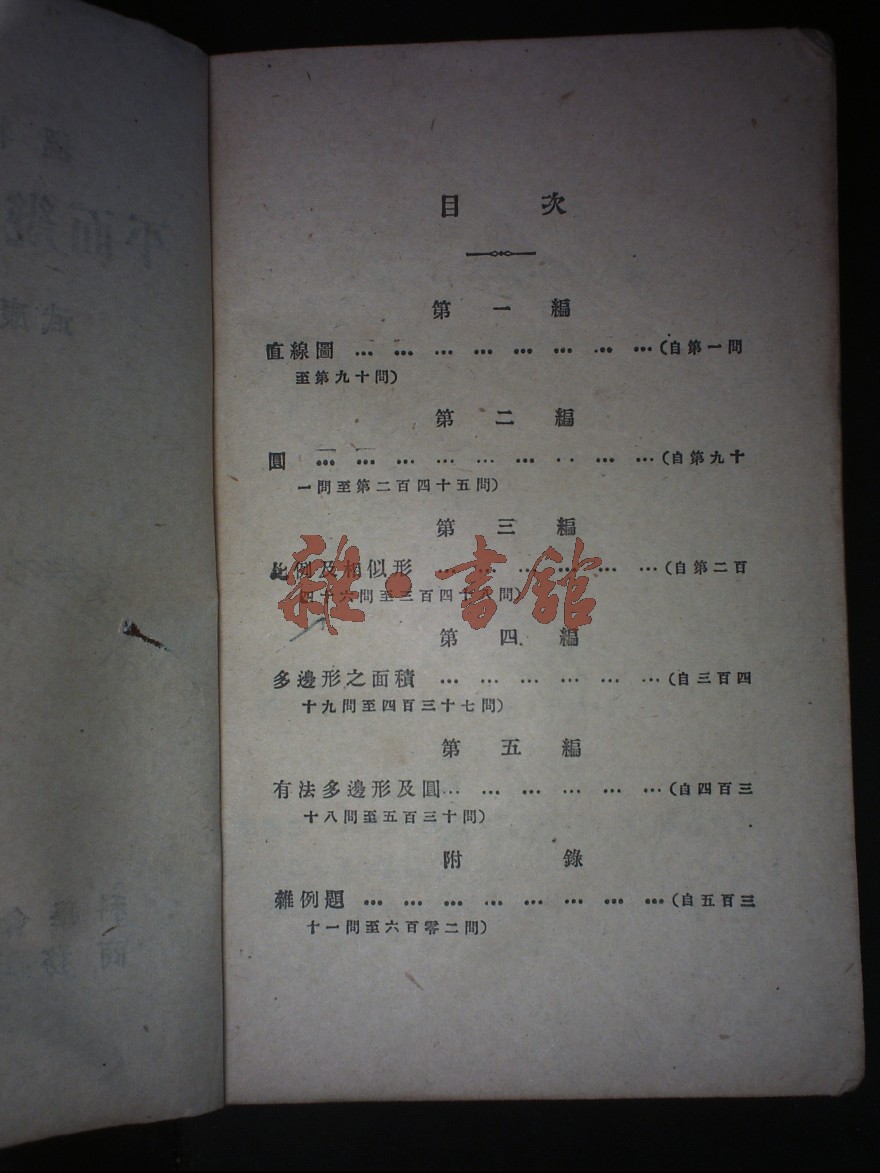 目次
第一編
直線圖 … … … … … … … …(自第一問
至第九十問)
第二編
圓 … … … … … … … … …(自第九十
一問至第二百四十五問)
第三編
比例及相似形 … … … … … …(自第二百
四十六問至三百四十八問)
第四編
多邊形之面積 … … … … … …(自三百四
十九問至四百三十七問)
第五編
有法多邊形及圓… … … … … …(自四百三
十八問至五百三十問)
附錄
雜例題 … … … … … … … …(自五百三
十一問至六百零二問)
雜·書館